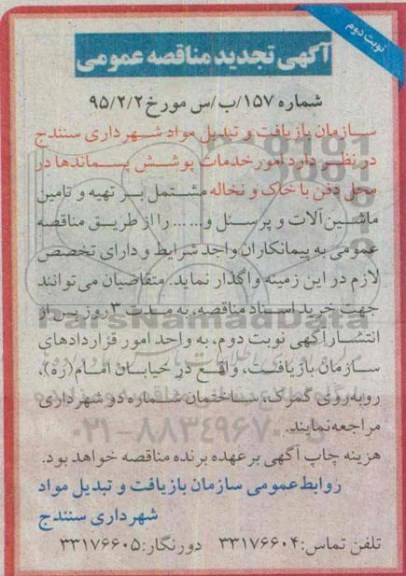 نوبت دوم
آگهی تجدید مناقصه عمومی
شماره ۱۵۷/ب/س مورخ ۹۵/۲/۲
سازمان بازیافت و تبدیل مواد شهرداری سنندج
در نظر دارد امور خدمات پوشش پسماندها در
محل دفن با خاک و نخاله مشتمل بر تهیه و تامین
ماشین آلات و پرسنل و... ... را از طریق مناقصه
عمومی به پیمانکاران واجد شرایط و دارای تخصص
لازم در این زمینه واگذار نماید. متقاضیان می توانند
جهت خرید اسناد مناقصه، به مدت ۳ روز پس از
انتشار آگهی نوبت دوم، به واحد امور قراردادهای
سازمان بازیافت، واقع در خیابان امام(ره)،
روبه‌روی گمرک، ساختمان شماره دو شهرداری
مراجعه نمایند.
هزینه چاپ آگهی بر عهده برنده مناقصه خواهد بود.
روابط عمومی سازمان بازیافت و تبدیل مواد
شهرداری سنندج
تلفن تماس: ۳۳۱۷۶۶۰۴ دورنگار: ۳۳۱۷۶۶۰۵
ParsNamadData
۰۲۱-۸۸۳۴۹۶۷۰